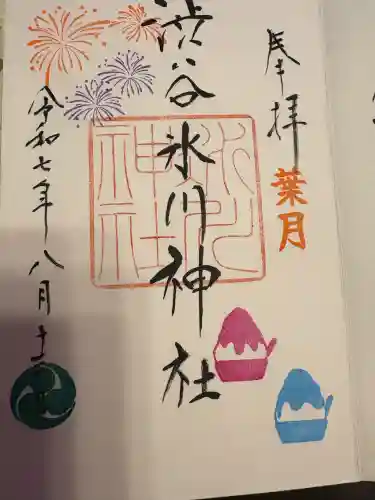 奉拝
葉月
渋谷氷川神社
令和七年八月十